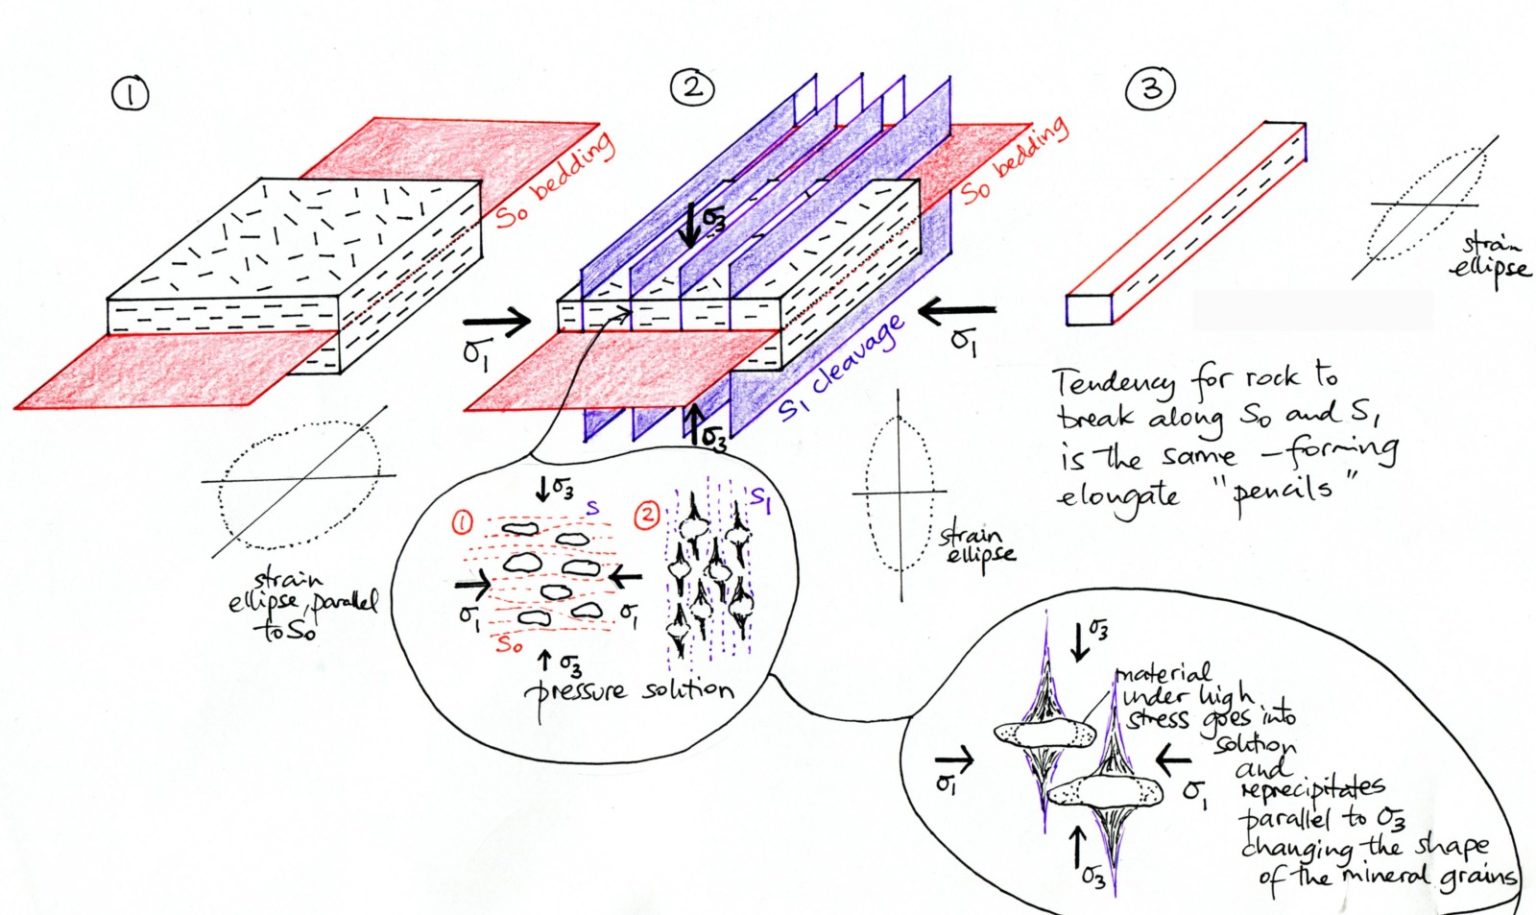 ①
②
③
S₀ bedding
S₀ bedding
σ₃
σ₁
σ₁
S₁ cleavage
σ₃
strain
ellipse
Tendency for rock to
break along S₀ and S₁
is the same – forming
elongate "pencils"
strain
ellipse, parallel
to S₀
strain
ellipse
σ₃
①
S
②
S₁
σ₁
σ₁
S₀
σ₃
pressure solution
σ₃
material
under high
stress goes into
solution
and
reprecipitates
parallel to σ₃
changing the shape
of the mineral grains
σ₁
σ₁
σ₃